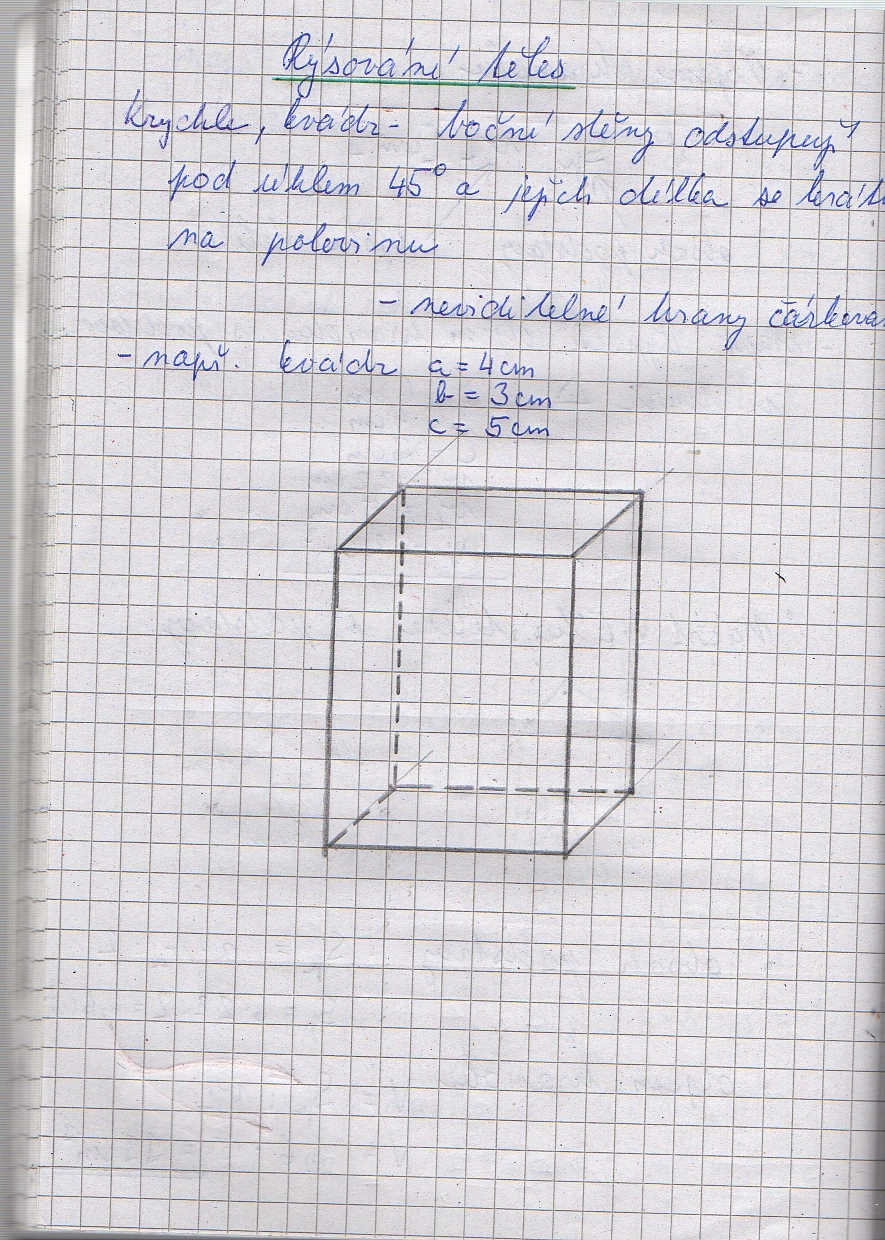 Rýsování těles
Krychle, kvádr - boční stěny odstupují
pod úhlem 45° a jejich délka se krát
na polovinu
- neviditelné hrany čárkovan
- např. kvádr a = 4 cm
b = 3 cm
c = 5 cm